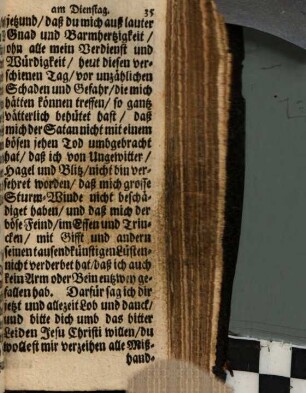 am Dienstag. 35
jetzund / daß du mich auß lauter
Gnad und Barmhertzigkeit /
ohn alle mein Verdienst und
Würdigkeit / heut diesen ver-
schienen Tag / vor unzählichen
Schaden und Gefahr / die mich
hätten können treffen / so gantz
vätterlich behütet hast / daß
mich der Satan nicht mit einem
bösen jehen Tod umbgebracht
hat / daß ich von Ungewitter /
Hagel und Blitz / nicht bin ver-
sehret worden / daß mich grosse
Sturm-Winde nicht beschä-
diget haben / und daß mich der
böse Feind / im Essen und Trin-
cken / mit Gifft und andern
seinen tausendkünstigen Lüsten-
nicht verderbet hat / daß ich auch
kein Arm oder Bein entzwey ge-
fallen hab. Darfür sag ich dir
jetzt und allezeit Lob und danck /
und bitte dich umb das bitter
Leiden Jesu Christi willen / du
wollest mir verzeihen alle Miß-
hand-